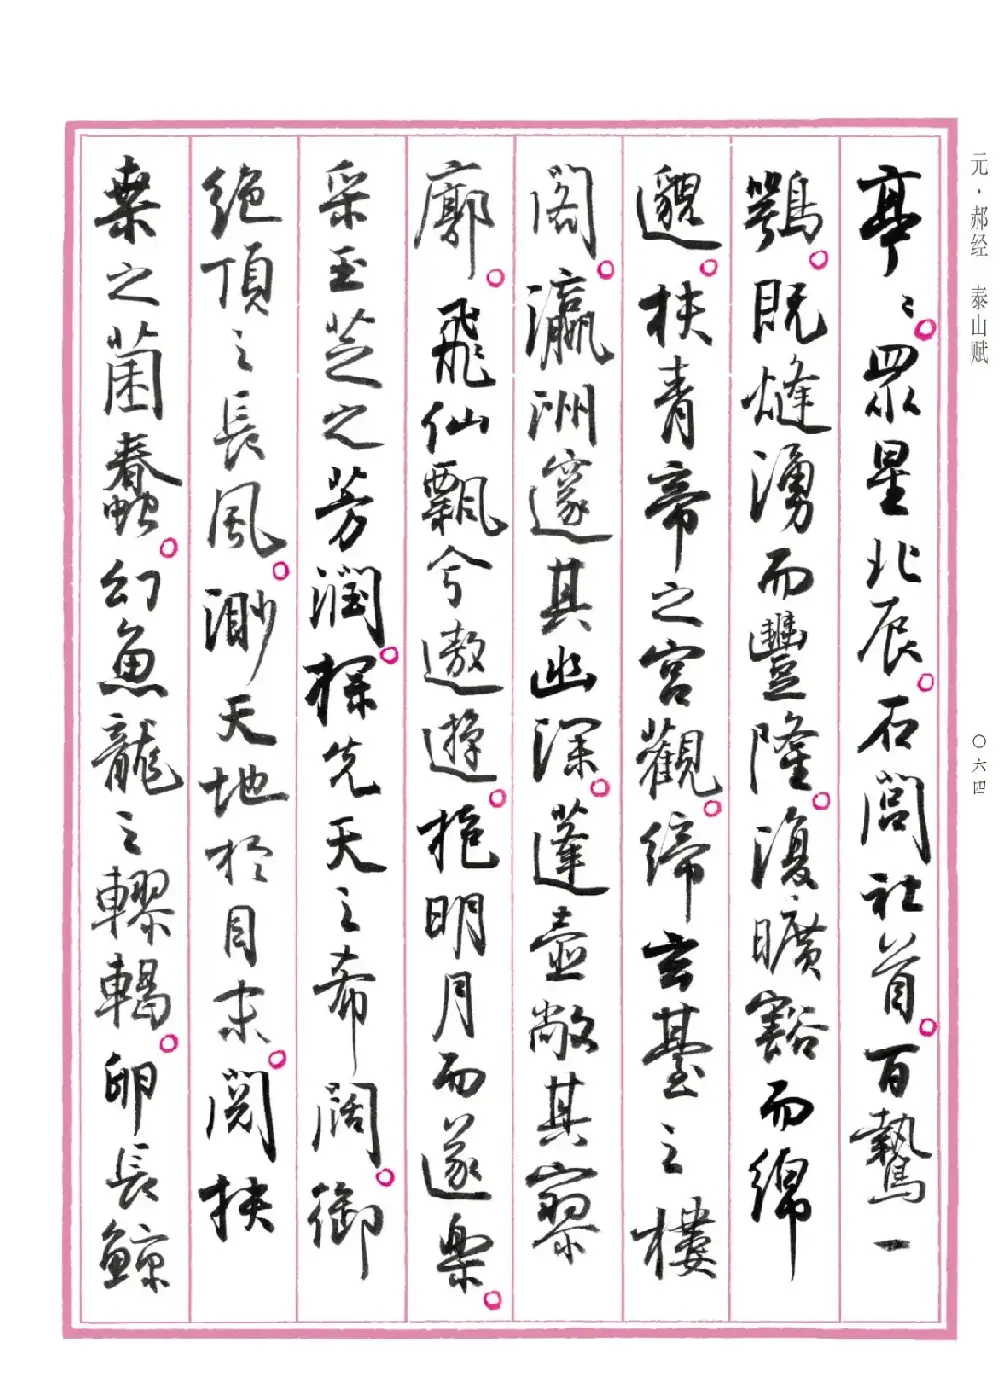 亭〻。眾星北辰。石閭社首。百鷙一
鶚。既熢湧而豐隆。復曠豁而綿
邈。扶青帝之宮觀。締玄臺之樓
閣。瀛洲邃其幽深。蓬壺敞其寥
廓。飛仙飄兮遨遊。抱明月而遂樂。
采玉芝之芳潤。探先天之希闊。御
絕頂之長風。渺天地於目末。閱扶
桑之菌蠢。幻魚龍之轇轕。卵長鯨
元·郝经 泰山赋
〇六四